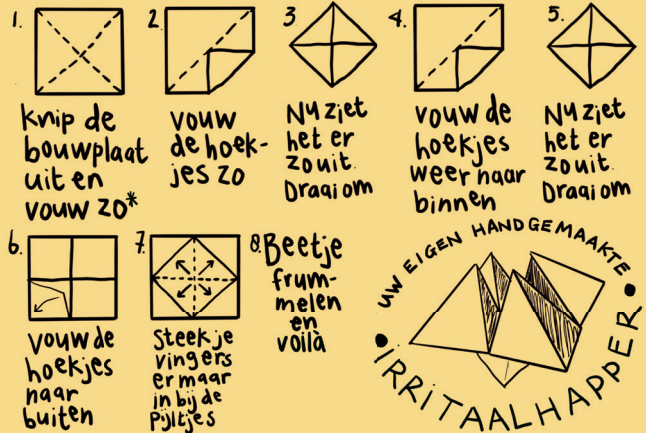 1.
Knip de
bouwplaat
uit en
vouw zo*
2.
vouw
de hoek-
jes zo
3
Nu ziet
het er
zo uit.
Draai om
4.
vouw de
hoekjes
weer naar
binnen
5.
Nu ziet
het er
zo uit.
Draai om
6.
vouw de
hoekjes
naar
buiten
7.
Steek je
vingers
er maar
in bij de
Pijltjes
8. Beetje
frum-
melen
en
voilà
UW EIGEN HANDGEMAAKTE
• IRRITAALHAPPER •